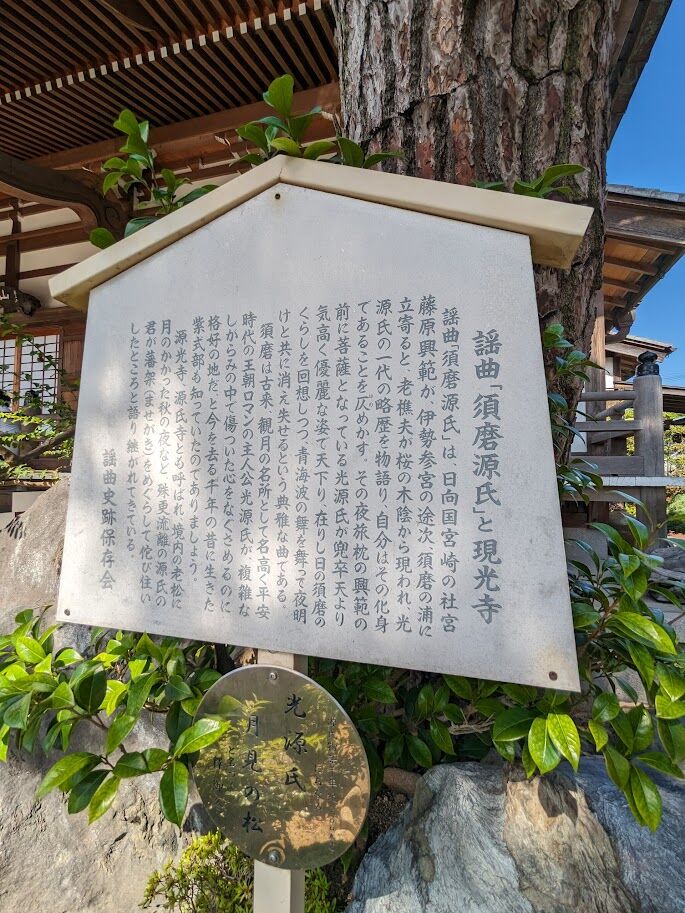 謡曲「須磨源氏」と現光寺
謡曲「須磨源氏」は、日向国宮崎の社宮
藤原興範が、伊勢参宮の途次、須磨の浦に
立寄ると、老樵夫が桜の木陰から現われ、光
源氏の一代の略歴を物語り、自分はその化身
であることを仄めかす。その夜旅枕の興範の
前に菩薩となっている光源氏が兜卒天より
気高く優麗な姿で天下り、在りし日の須磨の
くらしを回想しつつ、青海波の舞を舞って夜明
けと共に消え失せるという典雅な曲である。
須磨は古来、観月の名所として名高く平安
時代の王朝ロマンの主人公光源氏が、複雑な
しがらみの中で傷ついた心をなぐさめるのに
格好の地だ、と今を去る千年の昔に生きた
紫式部も知っていたのでありましょう。
源光寺、源氏寺とも呼ばれ、境内の老松に
月のかかった秋の夜など、殊更流離の源氏の
君が蕃架（ませがき）をめぐらして侘び住い
したところと語り継がれてきている。
謡曲史跡保存会
光源氏
月見の松